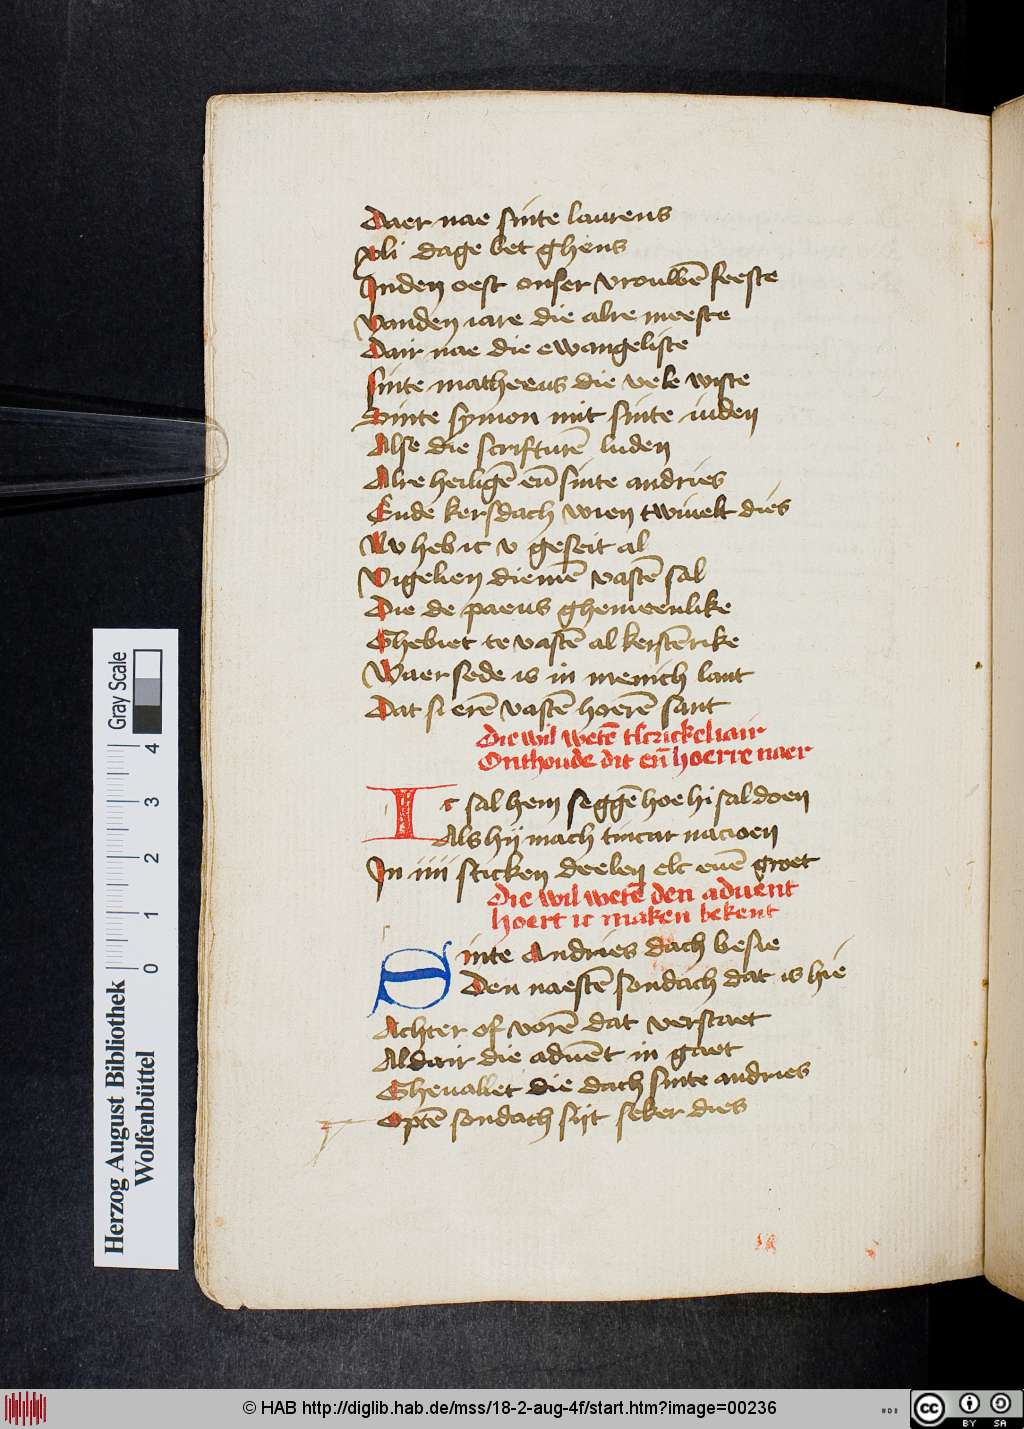 Daer nae sinte laurens
xli dage bet ghens
Inden oest onser vrouwē feeste
Vanden iare die alre meeste
Dair nae die ewangeliste
Sinte matheeus die vele wiste
Sinte symon mit sinte iuden
Alse die scrifturē luden
Alre heiligē eñ sinte andries
Ende kersdach wien twiuelt dies
Nv heb ic v geseit al
Vigelien diemē vastē sal
Die de paeus ghemeenlike
Ghebiet te vastē al kerstērike
Waer sede is in menich lant
Dat si erē vastē hoerē sant
Die wil wetē tscrickeliair
Onthoude dit eñ hoerre naer
Ic sal hem seggē hoe hi sal doen
Als hij mach tincar nacioen
In iiii sticken deelen elc euē groet
Die wil wetē den aduent
hoert ic maken bekent
Sinte Andries dach besie
Den naestē sondach dat is hie
Achter of vorē dat verstaet
Aldair die aduēt in gaet
Gheuallet die dach sinte andries
Optē sondach sijt seker dies
Herzog August Bibliothek
Wolfenbüttel
0 1 2 3 4
Gray Scale
© HAB http://diglib.hab.de/mss/18-2-aug-4f/start.htm?image=00236
cc BY SA